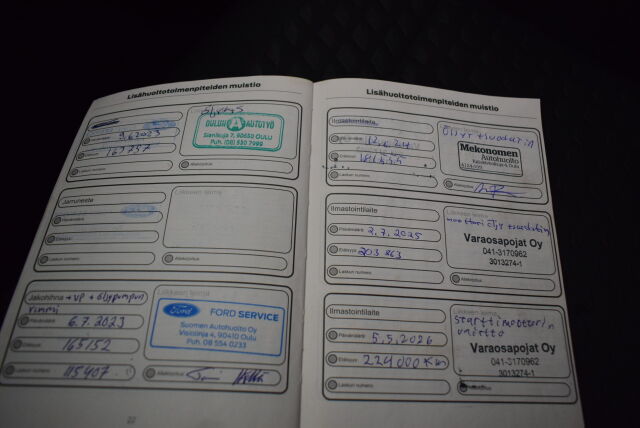 Lisähuoltotoimenpiteiden muistio
öljyt + S
9.6.2023
OULUN AUTOTYÖ
Sienikuja 7, 90650 OULU
Puh. (08) 530 7999
Allekirjoitus
Jarruneste
Liikkeen leima
Päivämäärä
Etäisyys
Laskun numero
Allekirjoitus
Jakohihna + VP + öljypumpun
rimmi
Liikkeen leima
Päivämäärä 6.7.2023
Etäisyys 165152
Laskun numero 115407
Ford FORD SERVICE
Suomen Autohuolto Oy
Visiotinja 4, 90410 Oulu
Puh. 08 554 0233
Allekirjoitus
22
Lisähuoltotoimenpiteiden muistio
Ilmastointilaite
Öljyt + suodatin
Mekonomen
Autohuolto
Etäisyys
Laskun numero
Allekirjoitus
Ilmastointilaite
Liikkeen leima
moottori öljy + suodatin
Päivämäärä 2.7.2025
Etäisyys 203 863
Laskun numero
Varaosapojat Oy
041-3170962
3013274-1
Allekirjoitus
Ilmastointilaite
Liikkeen leima
starttimoottorin
vaihto
Päivämäärä 5.5.2026
Etäisyys 224 000 Km
Laskun numero
Varaosapojat Oy
041-3170962
3013274-1
Allekirjoitus